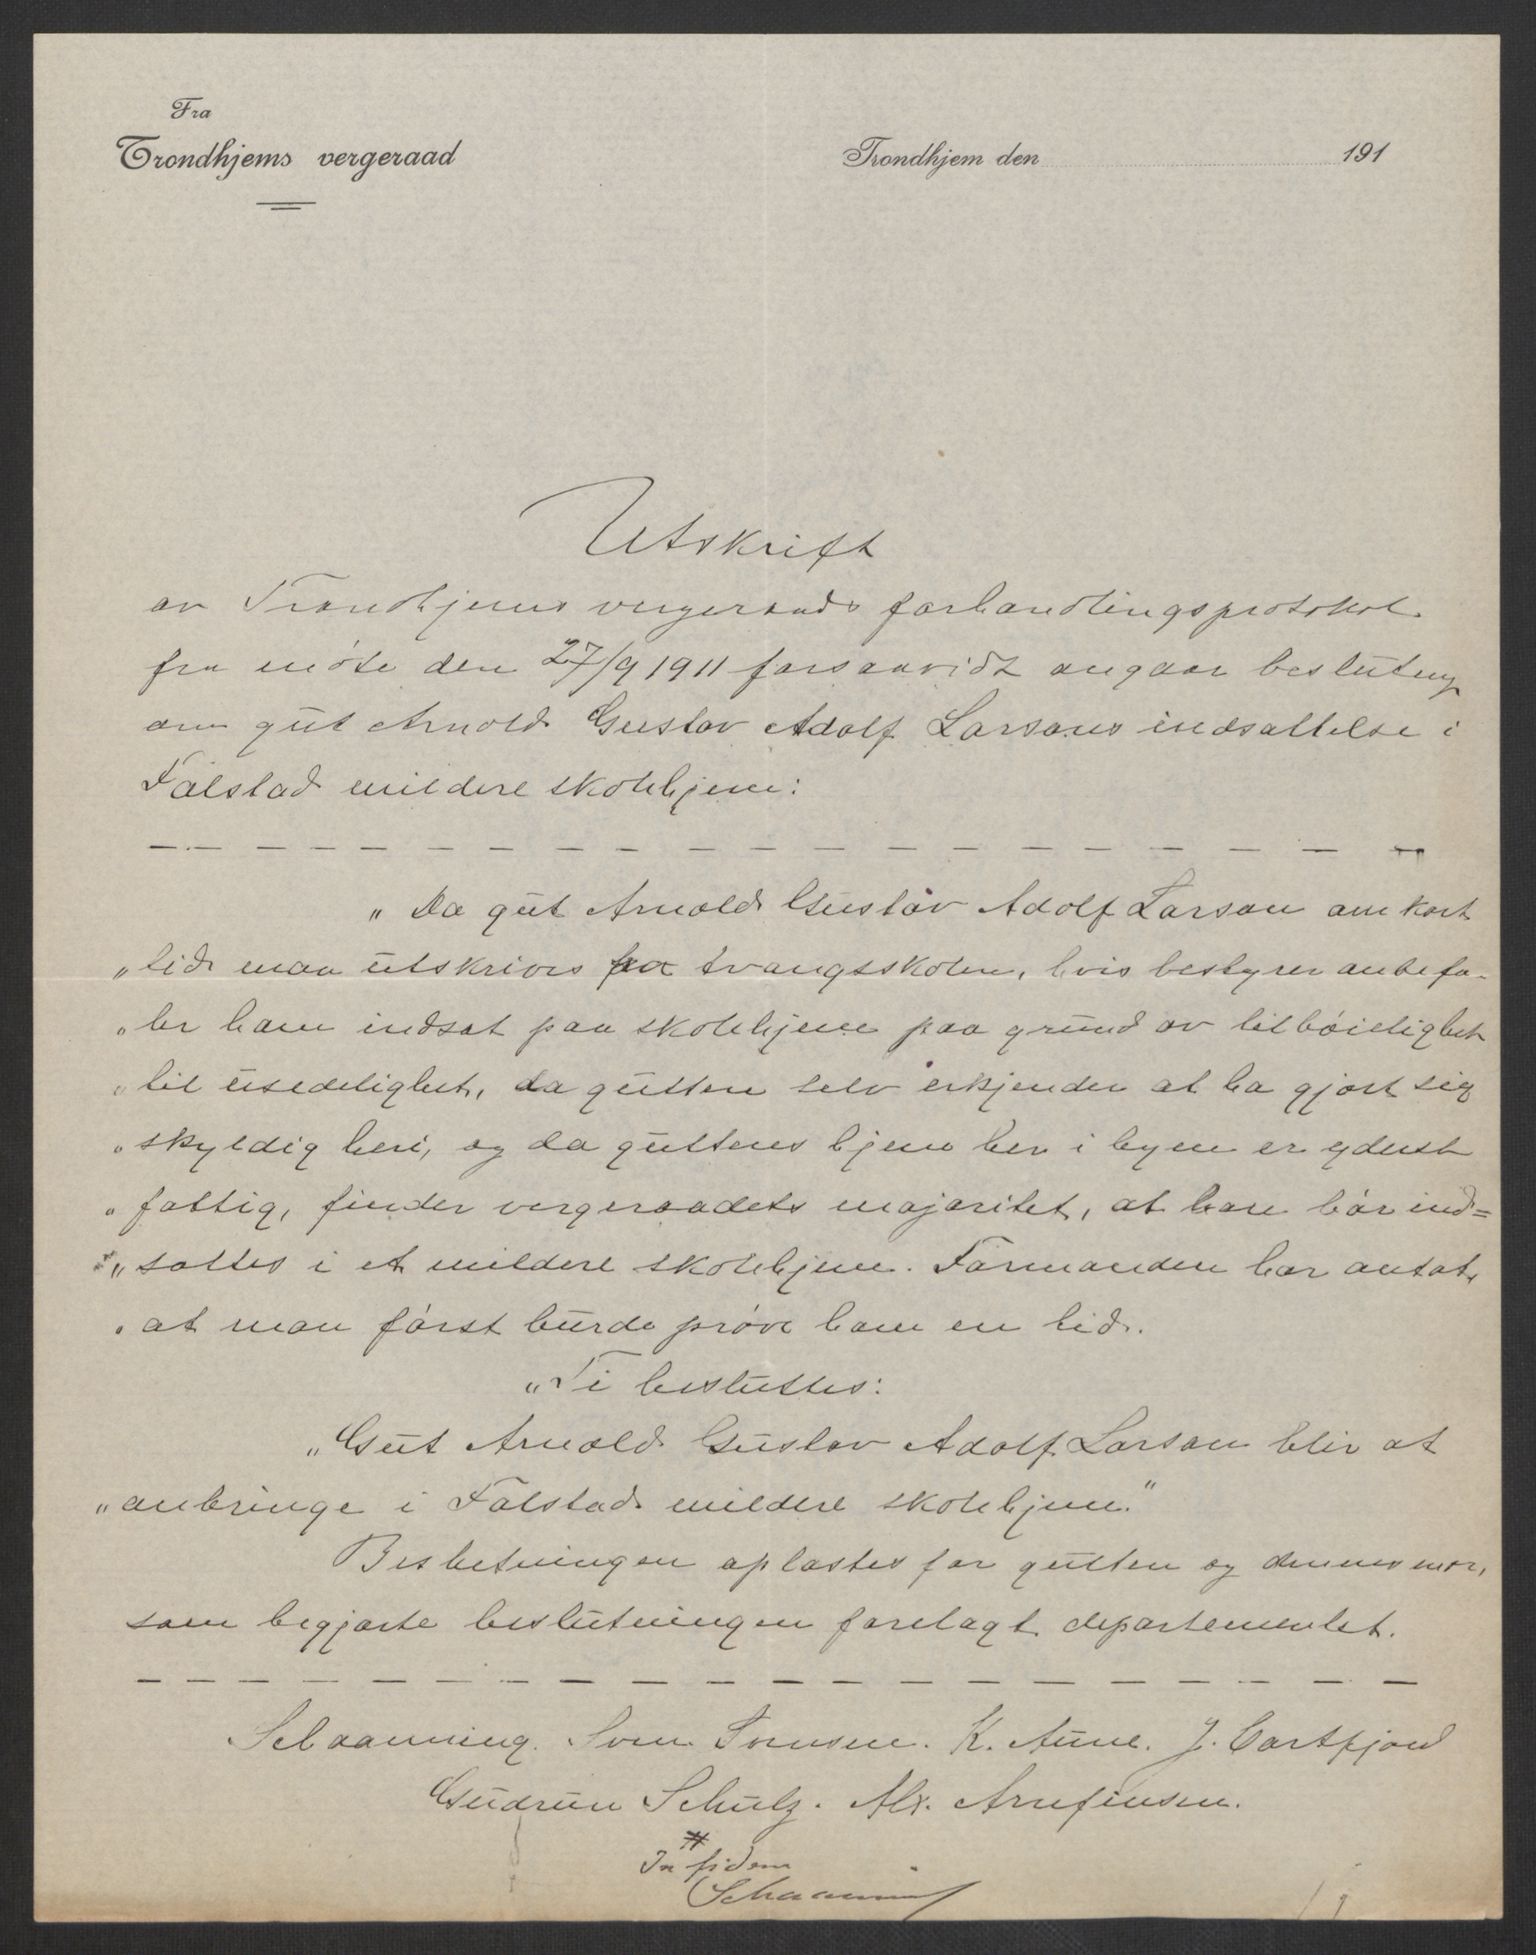 Fra
Trondhjems vergeraad
Trondhjem den 191
Utskrift
av Trondhjems vergeraads forhandlingsprotokol
fra møte den 27/9 1911 forsaavidt angaar beslutng
om gut Arnold Gustav Adolf Larsons indsættelse i
Falstad mildere skolehjem:
„Da gut Arnold Gustav Adolf Larson om kort
„tid maa utskrives fra tvangsskolen, hvis bestyrer anbefa-
„ler ham indsat paa skolehjem paa grund av tilbøielighet
„til usedelighet, da gutten selv erkjender at ha gjort sig
„skyldig heri, og da guttens hjem her i byen er yderst
„fattig, finder vergeraadets majoritet, at han bør ind=
„sættes i et mildere skolehjem. Formanden har antat,
„at man først burde prøve ham en tid.
„Ti besluttes:
„Gut Arnold Gustav Adolf Larson blir at
„anbringe i Falstad mildere skolehjem."
Beslutningen oplæstes for gutten og dennes mor,
som begjærte beslutningen forelagt departementet.
Schaanning. Sven Svensen. K. Aune. J. Cartfjord
Gudrun Schulz. Alx. Arnfinsen.
In fidem
Schaanning